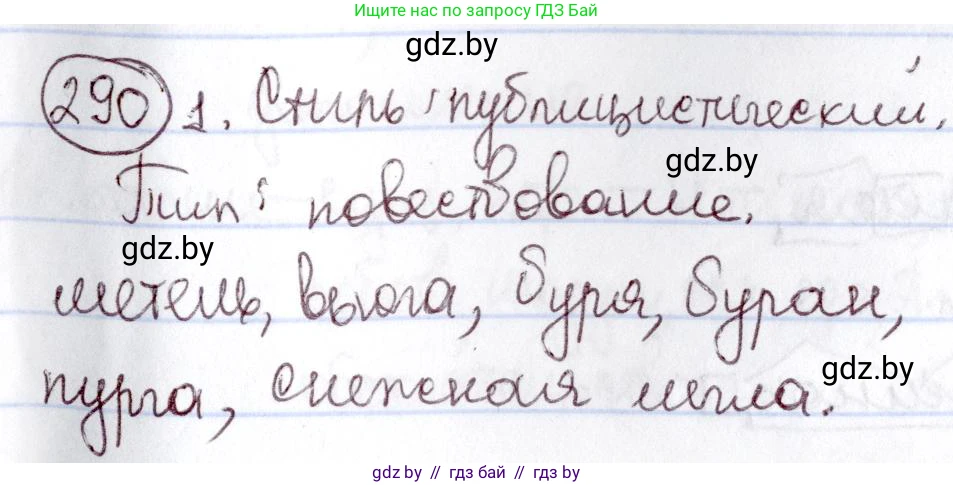 Ищите нас по запросу ГДЗ Бай
gdz.by
290 1. Стиль: публицистический.
gdz.by
Тип: повествование.
gdz.by
метель, вьюга, буря, буран,
gdz.by
пурга, снежная мгла.
gdz.by // гдз бай // гдз by